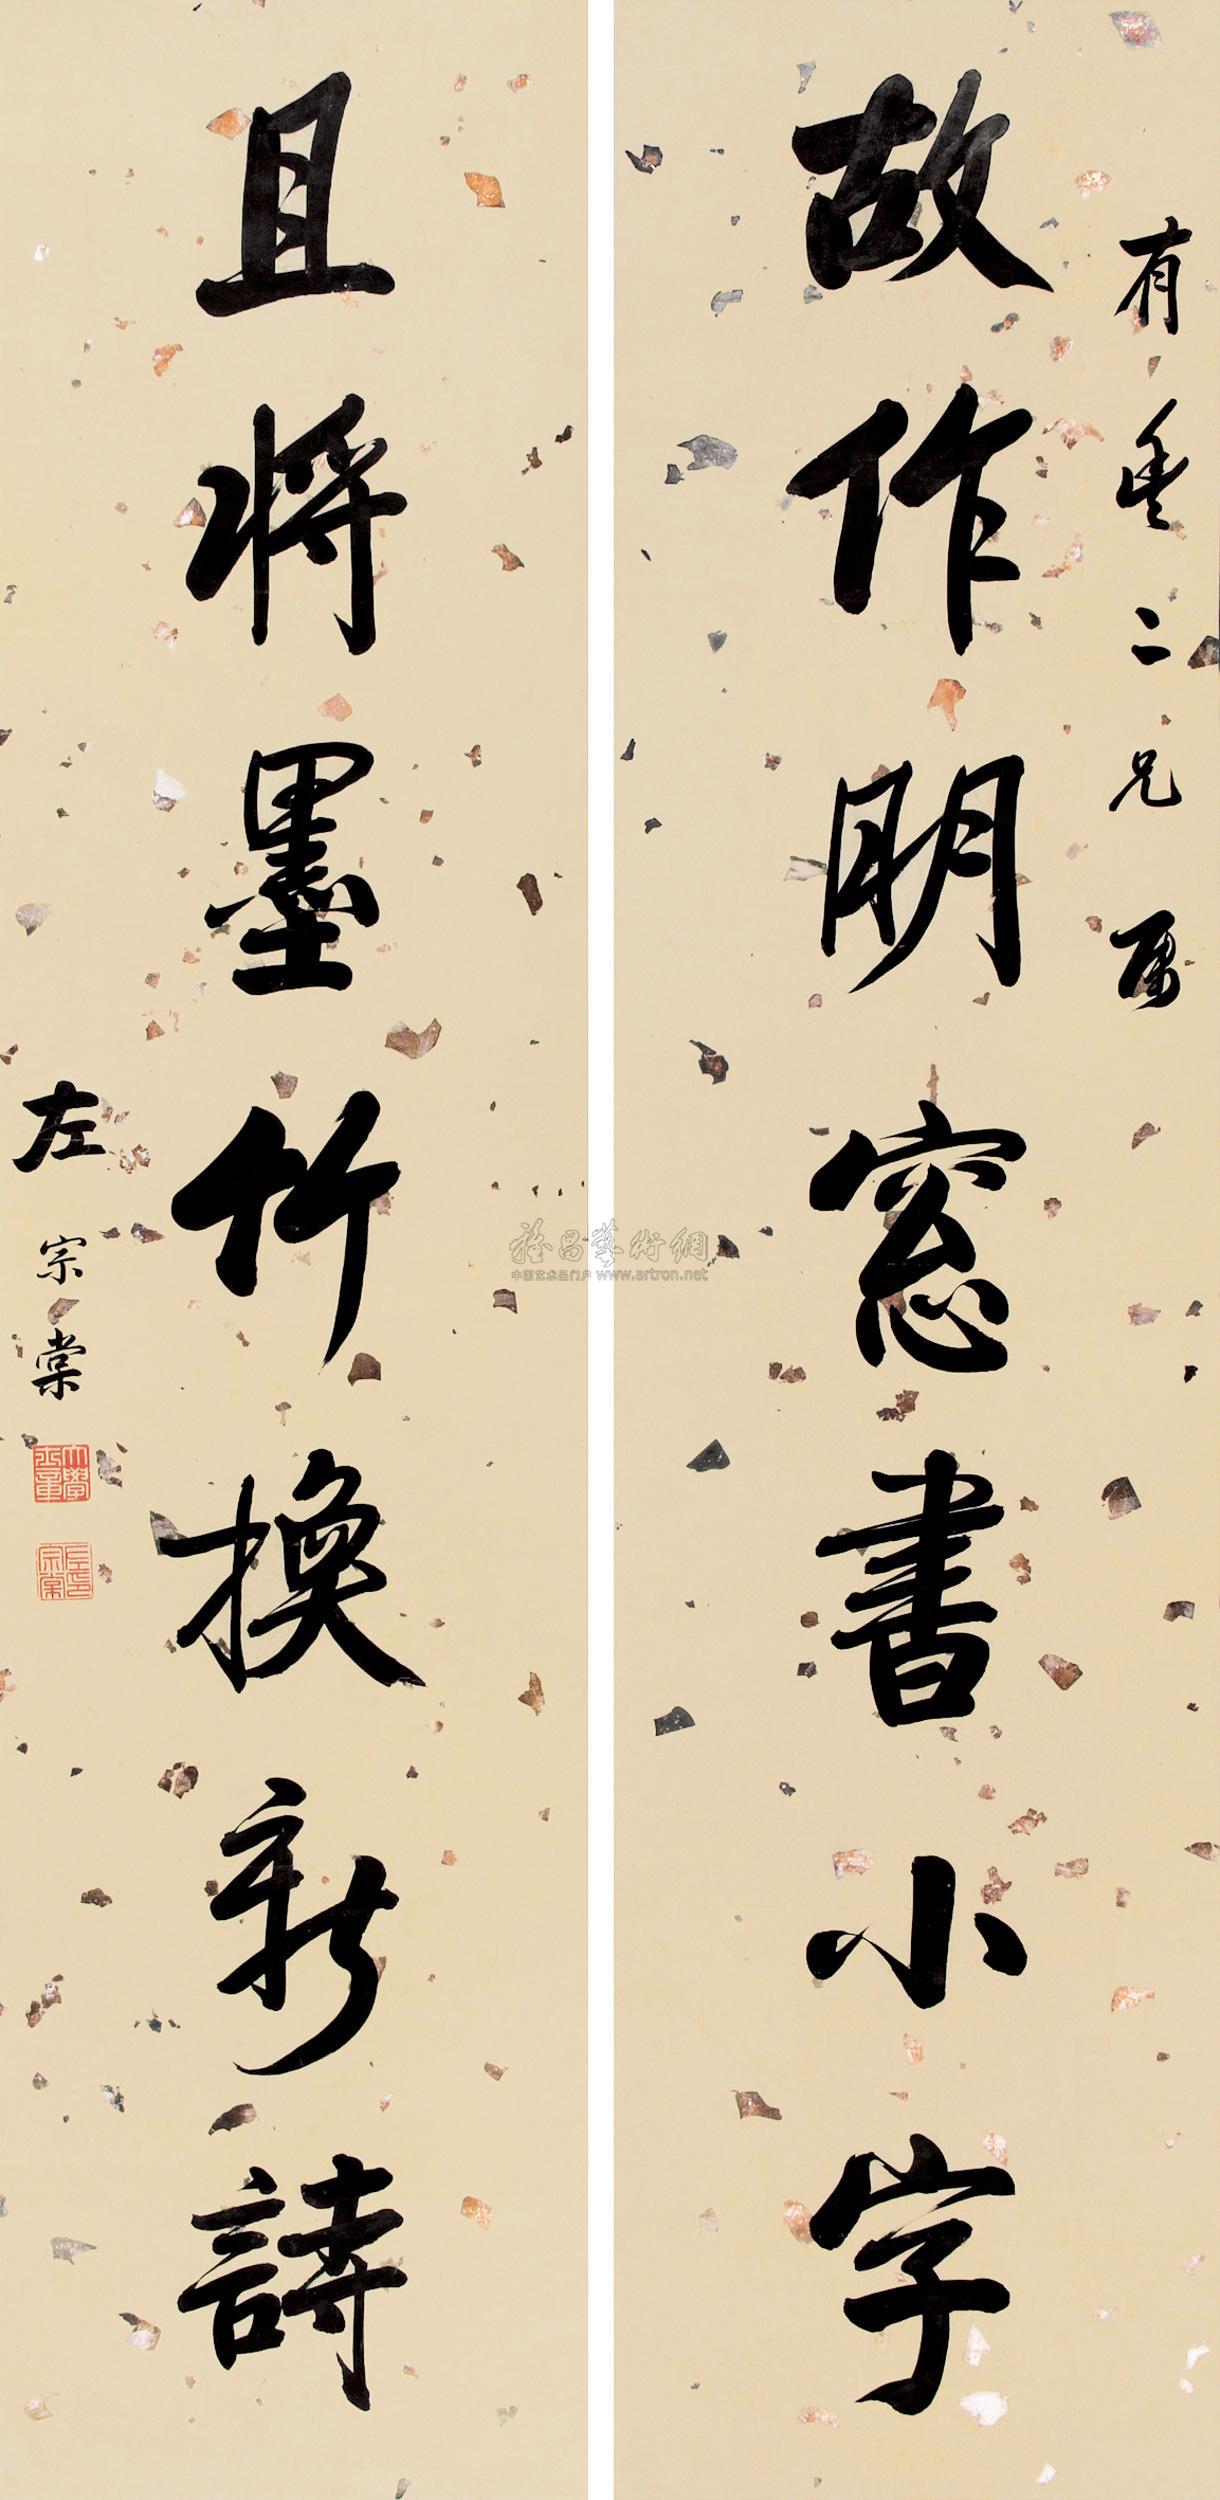 有垂二兄屬
故作明窓書小字
且將墨竹換新詩
左宗棠
大學士章
左宗棠印
雅昌藝術網
中国艺术品门户 www.artron.net